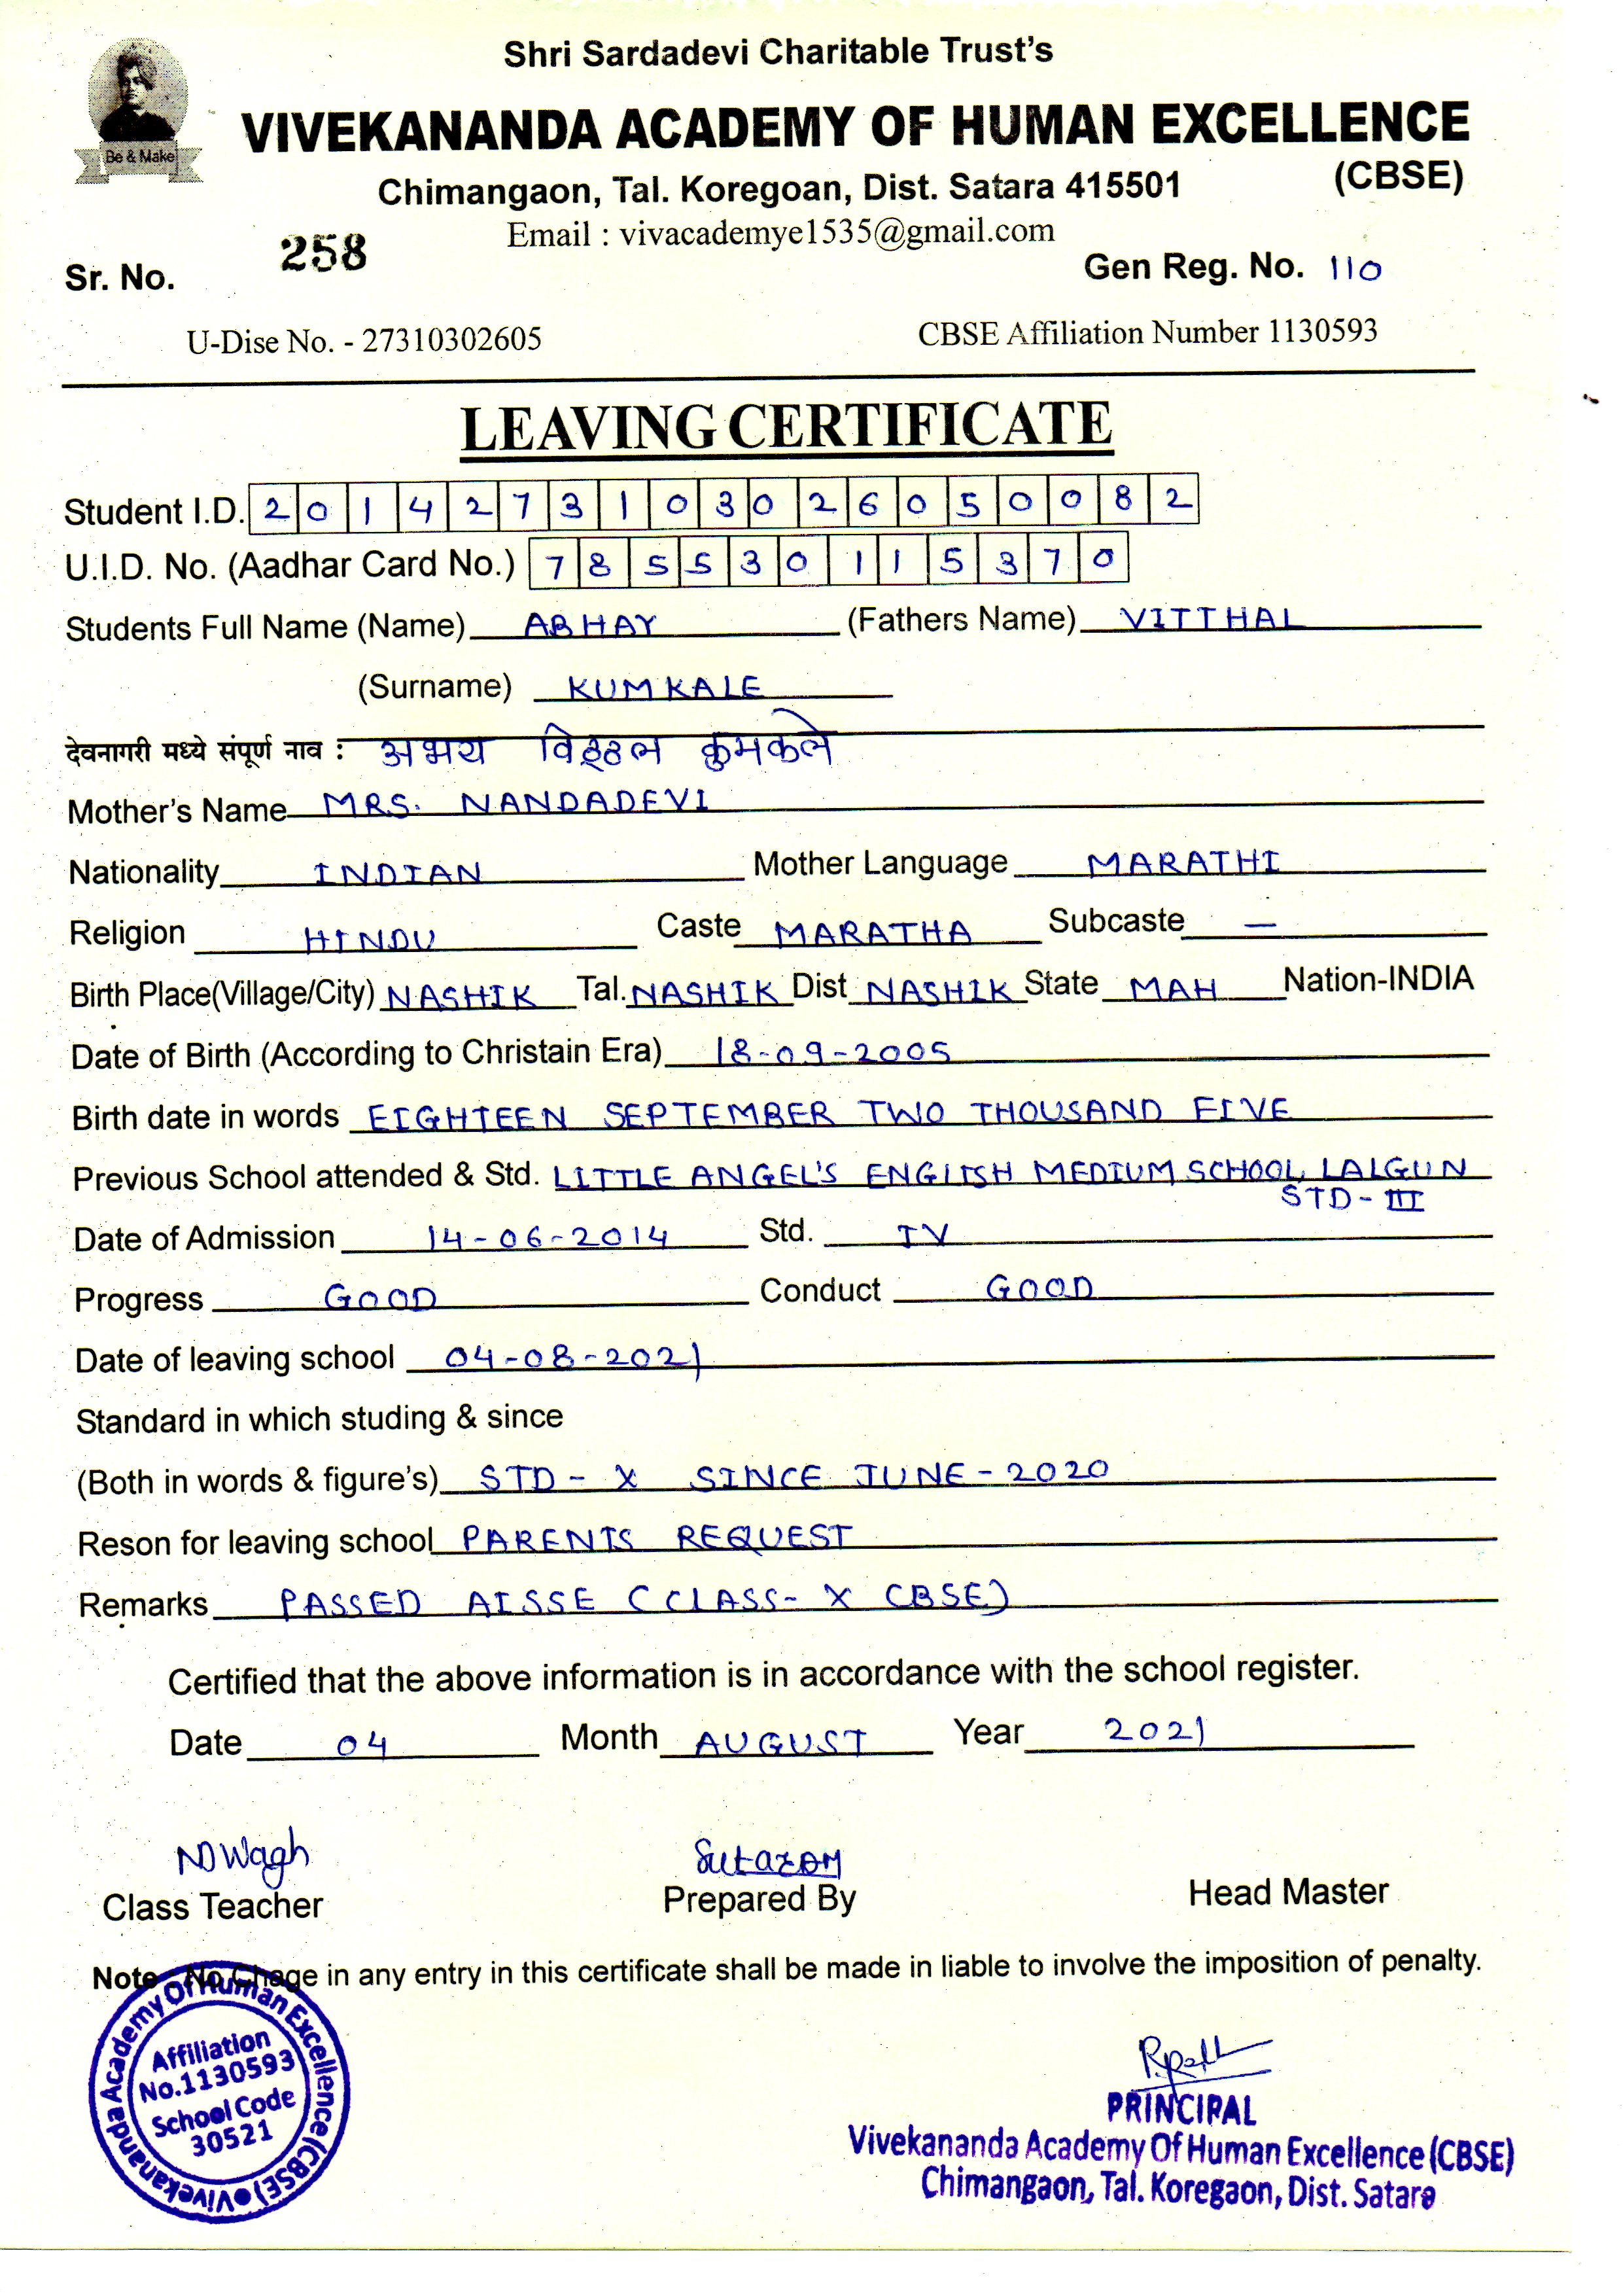 Shri Sardadevi Charitable Trust's
Be & Make
VIVEKANANDA ACADEMY OF HUMAN EXCELLENCE
(CBSE)
Chimangaon, Tal. Koregoan, Dist. Satara 415501
Email : vivacademye1535@gmail.com
Sr. No. 258 Gen Reg. No. 110
U-Dise No. - 27310302605 CBSE Affiliation Number 1130593
LEAVING CERTIFICATE
Student I.D. 2014273103026050082
U.I.D. No. (Aadhar Card No.) 785530115370
Students Full Name (Name) ABHAY (Fathers Name) VITTHAL
(Surname) KUMKALE
देवनागरी मध्ये संपूर्ण नाव : अभय विठ्ठल कुमकले
Mother's Name MRS. NANDADEVI
Nationality INDIAN Mother Language MARATHI
Religion HINDU Caste MARATHA Subcaste —
Birth Place(Village/City) NASHIK Tal. NASHIK Dist NASHIK State MAH Nation-INDIA
Date of Birth (According to Christain Era) 18-09-2005
Birth date in words EIGHTEEN SEPTEMBER TWO THOUSAND FIVE
Previous School attended & Std. LITTLE ANGEL'S ENGLISH MEDIUM SCHOOL, LALGUN
STD - III
Date of Admission 14-06-2014 Std. IV
Progress GOOD Conduct GOOD
Date of leaving school 04-08-2021
Standard in which studing & since
(Both in words & figure's) STD - X SINCE JUNE - 2020
Reson for leaving school PARENTS REQUEST
Remarks PASSED AISSE (CLASS- X CBSE)
Certified that the above information is in accordance with the school register.
Date 04 Month AUGUST Year 2021
NDWagh
Class Teacher Prepared By Head Master
Note - No Chage in any entry in this certificate shall be made in liable to involve the imposition of penalty.
Vivekananda Academy Of Human Excellence (CBSE)
Affiliation
No.1130593
School Code
30521
PRINCIPAL
Vivekananda Academy Of Human Excellence (CBSE)
Chimangaon, Tal. Koregaon, Dist. Satara